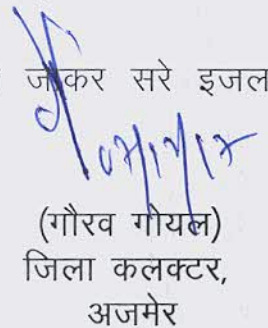 जाकर सरे इजल
(गौरव गोयल)
जिला कलक्टर,
अजमेर